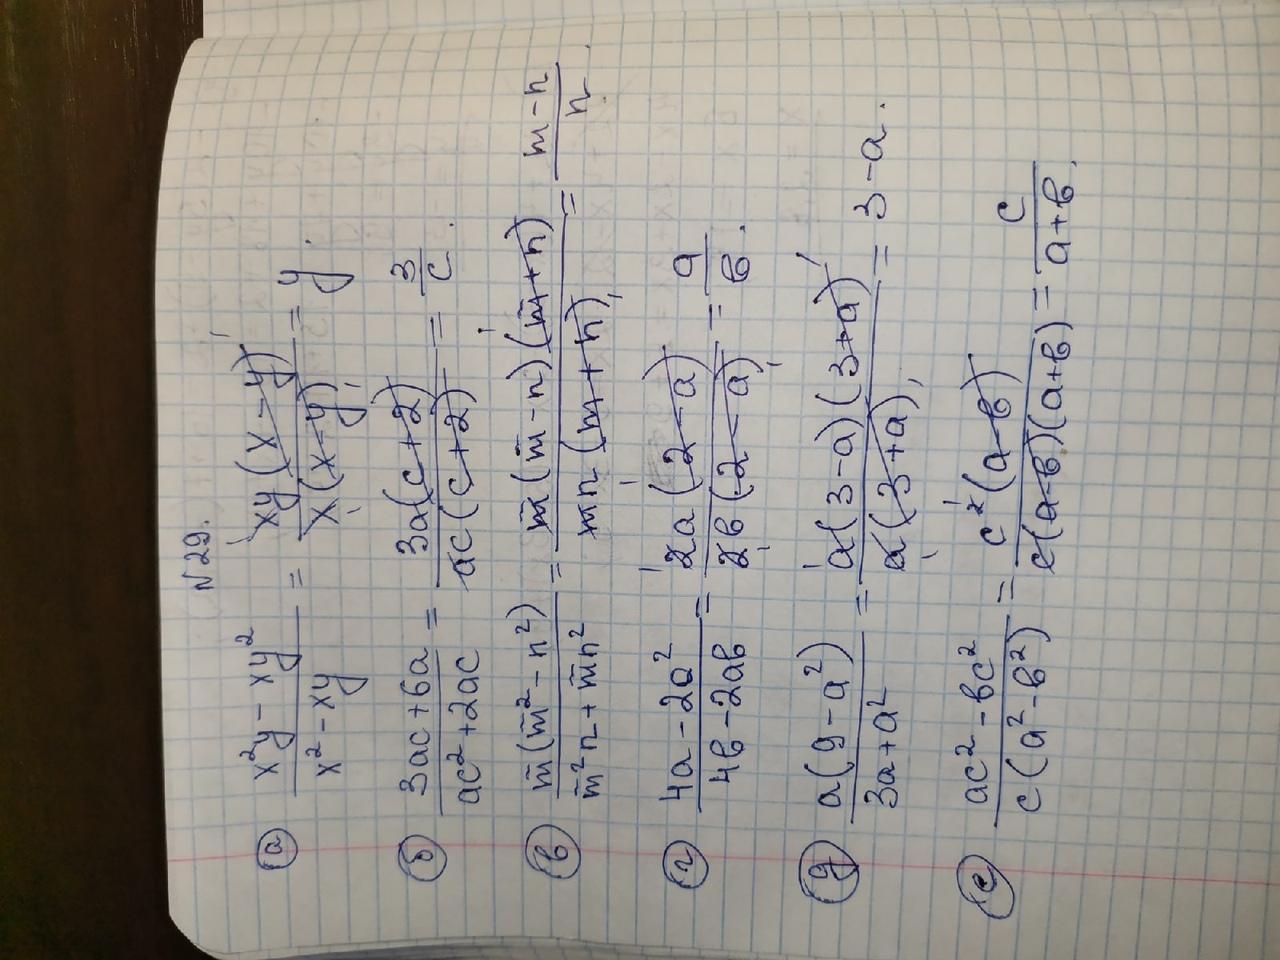 N29.
а) (x²y - xy²)/(x² - xy) = (xy(x-y))/(x(x-y)) = y.
б) (3ac+6a)/(ac²+2ac) = (3a(c+2))/(ac(c+2)) = 3/c.
в) (m(m²-n²))/(m²n+mn²) = (m(m-n)(m+n))/(mn(m+n)) = (m-n)/n.
г) (4a-2a²)/(4b-2ab) = (2a(2-a))/(2b(2-a)) = a/b.
д) (a(9-a²))/(3a+a²) = (a(3-a)(3+a))/(a(3+a)) = 3-a.
е) (ac²-bc²)/(c(a²-b²)) = (c²(a-b))/(c(a-b)(a+b)) = c/(a+b).